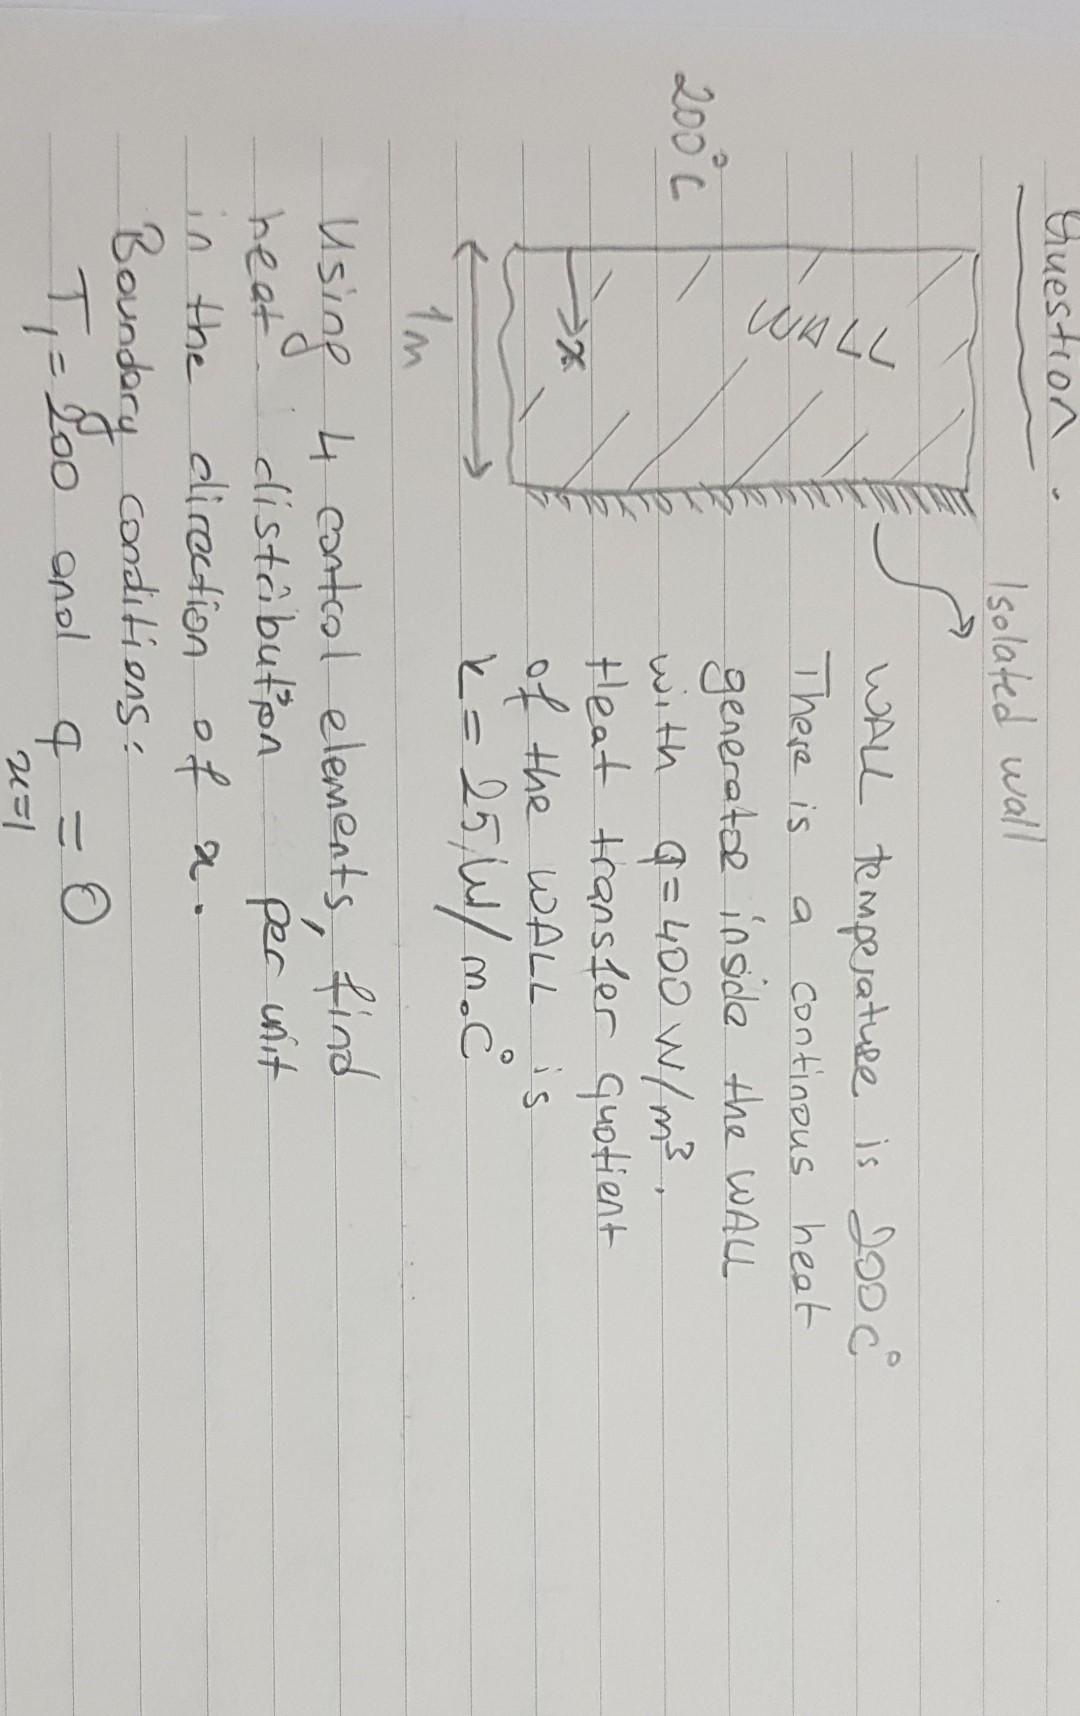 Question.
Isolated wall
200°C
WALL
x
1m
WALL temperature is 200C°
There is a continous heat
generator inside the WALL
with q=400 W/m³.
Heat transfer quotient
of the WALL is
k=25 W/m.C°
Using 4 control elements, find
heat distribution per unit
in the direction of x.
Boundary conditions:
T₁=200 and q = 0
x=1